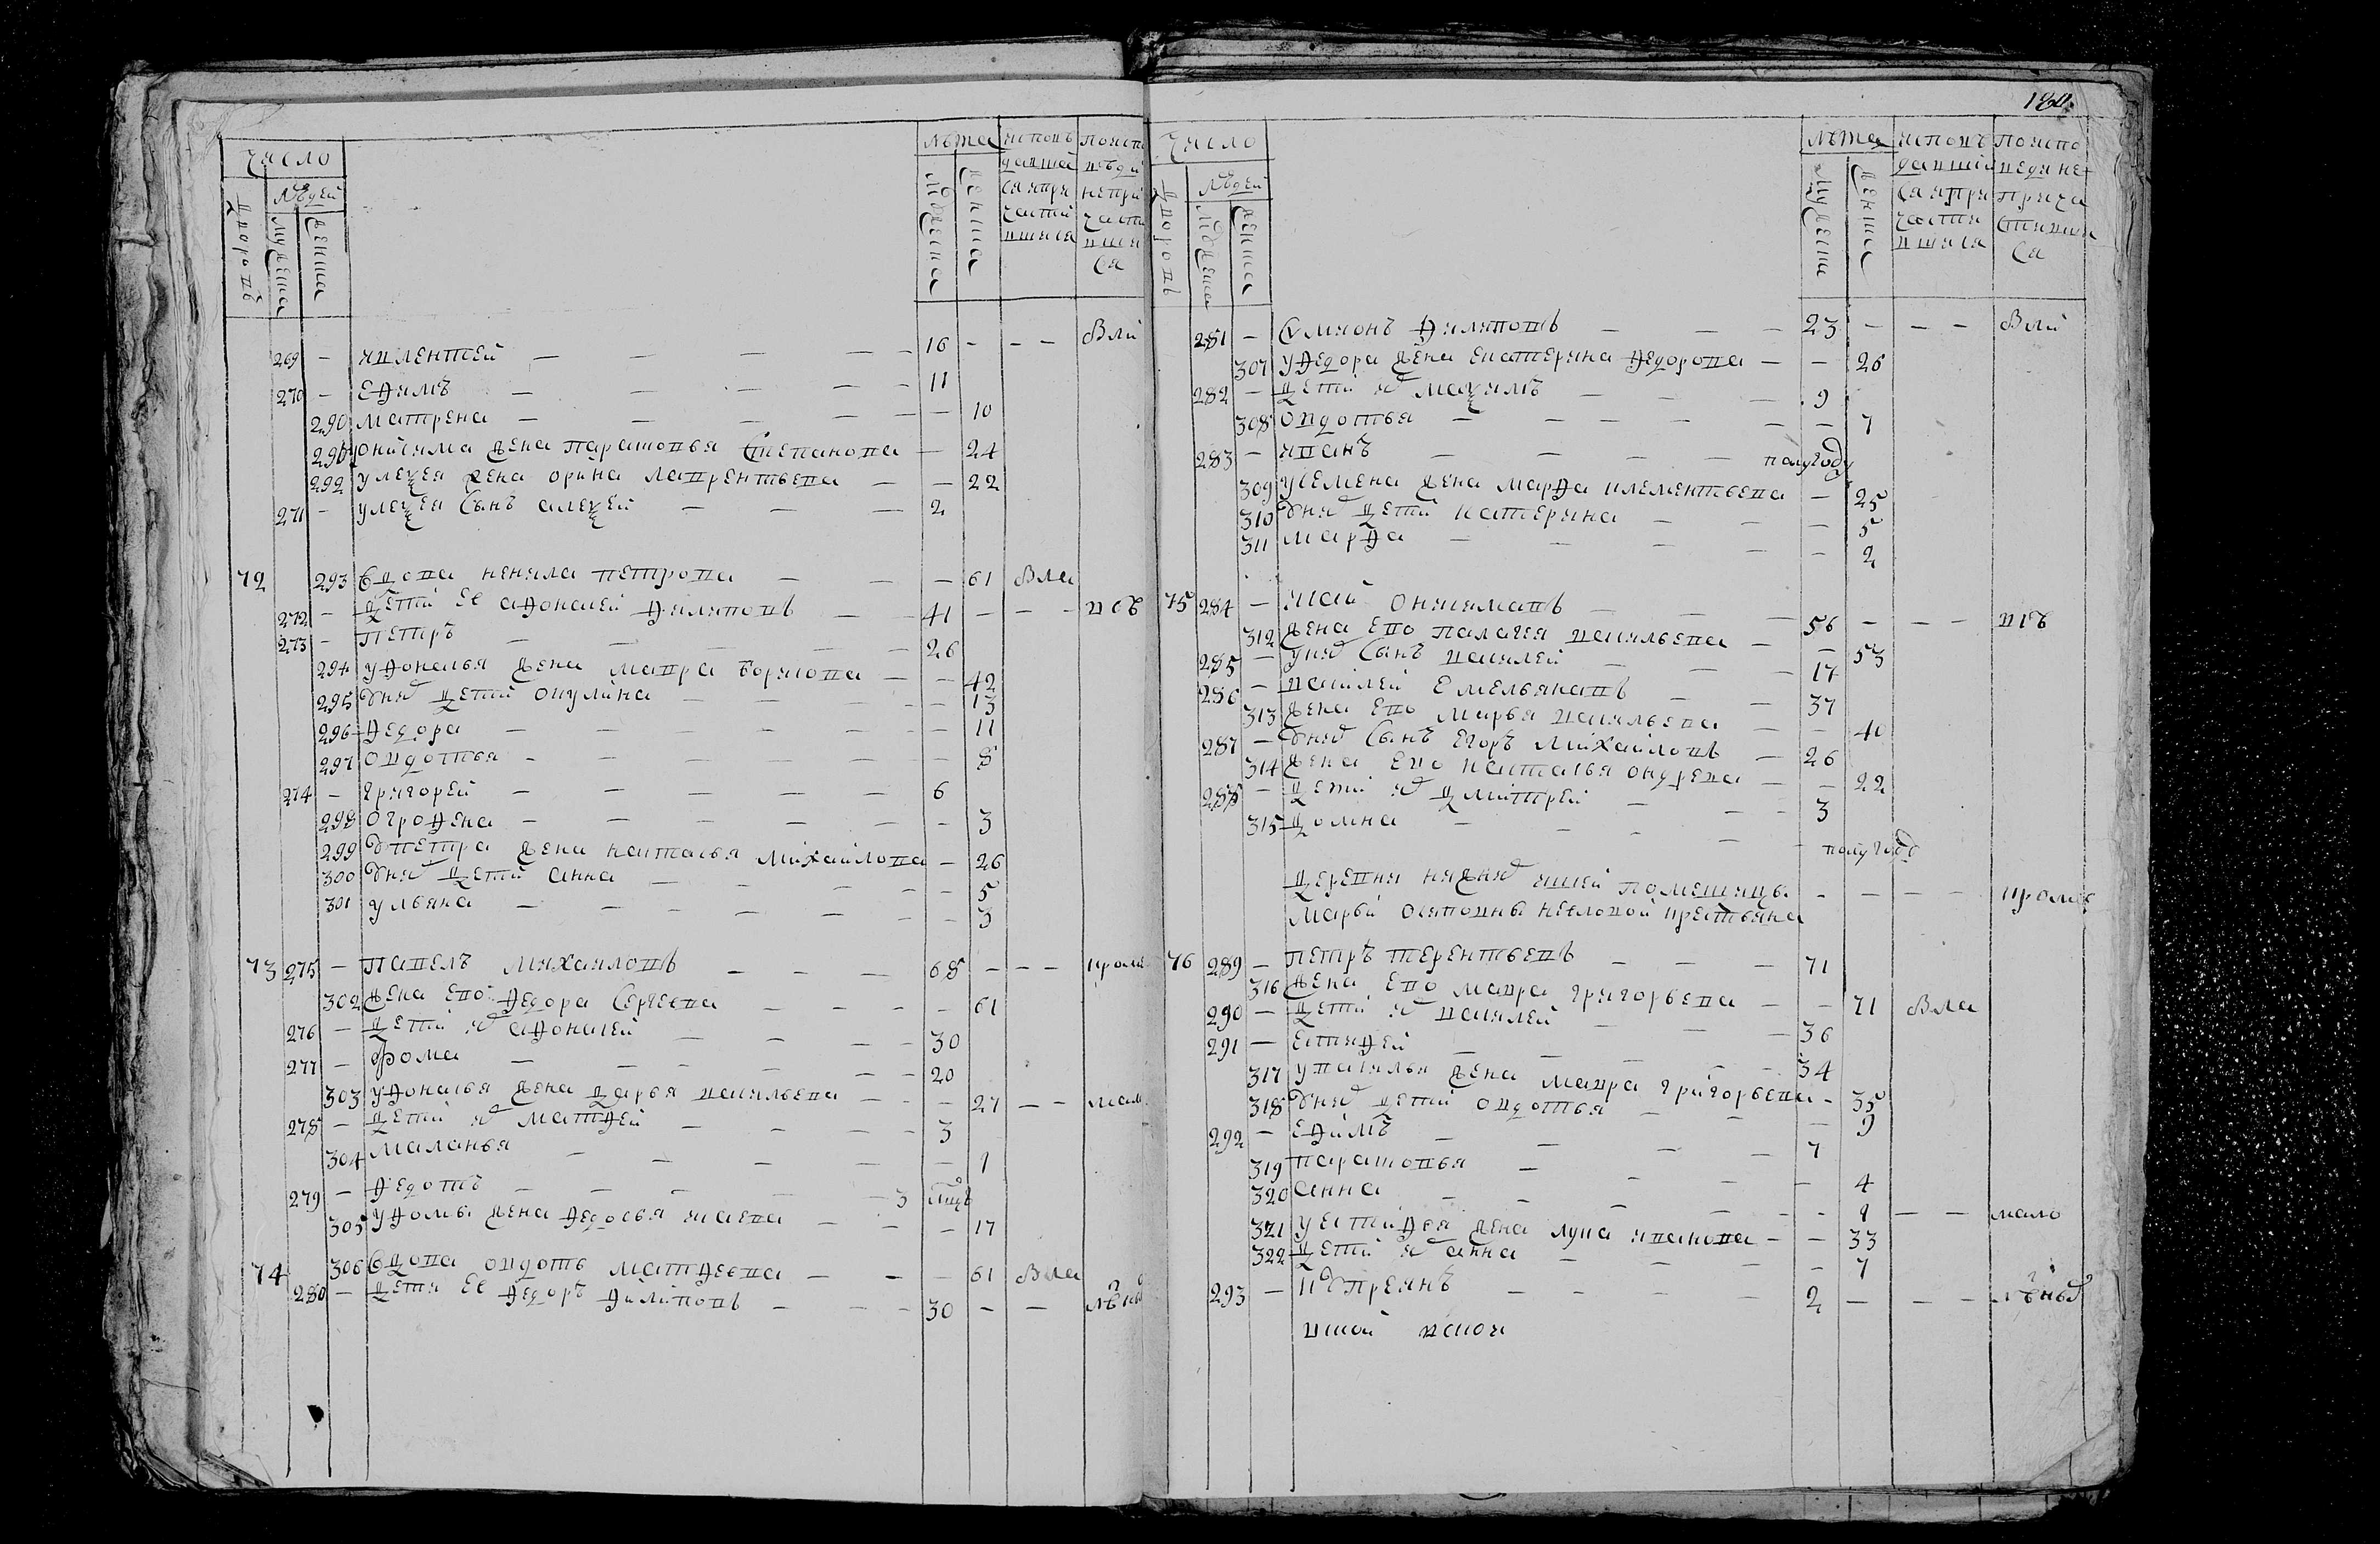 число
лѣта
исповѣ
давшіи
ся и при
части
вшися
дворовъ
людей
мужеска
женска
мужеска
женска
269 — Иклентей — — — — 16 — — — Вли
270 — Ефимъ — — — — 11
290 Матрена — — — — 10
291 у Онисима жена Парасковья Степанова — 24
292 у Алексея жена Орина Лаврентьева — — 22
271 — у Алексея сынъ Алексей — — — 2
72 293 Вдова Ненила Петрова — — — 61 Вла
272 — Дети ее Афонасей Филиповъ — — 41 — — — все
273 — Петръ — — — — 26
294 у Афонасья жена Мавра Борисова — — 42
295 У них дети Окулина — — — — 13
296 Федора — — — — — 11
297 Овдотья — — — — — 8
274 — Григорей — — — — — 6
298 Огрофена — — — — — 3
299 У Петра жена Наталья Михайлова — 26
300 У них дети Анна — — — — 5
301 Ульяна — — — — — 3
73 275 — Павелъ Михаиловъ — — — 68 — — — кроме
302 жена ево Федора Сергеева — — — 61
276 — Дети их Афонасей — — — 30
277 — Фома — — — — 20
303 у Афонасья жена Дарья Васильева — — — 27 — — мал
278 — Дети их Матфей — — — — 3
304 Маланья — — — — — 1
279 — Федотъ — — — — 3 мцѣ
305 у Фомы жена Федосья Исаева — — — 17
74 306 Вдова Овдоть Матфеева — — — 61 Вла
280 — Дети ее Федоръ Филиповъ — — — 30 — —
число
лѣта
исповѣ
давшіи
ся и при
части
вшися
по испо
веди не
прича
стивши
ся
дворовъ
людей
мужеска
женска
мужеска
женска
281 — Симионъ Филиповъ — — — 23 — — — Вли
307 у Федора жена Екатерина Федорова — — 26
282 — Дети их Максимъ — — — 9
308 Овдотья — — — — — 7
283 — Иванъ — — — — полугоду
309 у Семена жена Марфа Клементьева — 25
310 У них дети Катерина — — — 5
311 Марфа — — — — — 2
75 284 — Исай Онисимавъ — — — 56 — — — все
312 жена ево Палагея Васильева — — 53
285 — У них сынъ Василей — — 17
286 — Василей Емельянавъ — 37
313 жена ево Марья Васильева — — 40
287 — У них сынъ Егоръ Михайловъ — 26
314 жена ево Наталья Ондрева — — 22
288 — Дети их Дмитрей — — — 3
315 Домна — — — — полугоду
Деревни помещицы — — — — кроме
Марьи Осиповны крестьяна
76 289 — Петръ Терентьевъ — — — 71
316 жена ево Мавра Григорьева — — 71 Вла
290 — Дети их Василей — — — 36
291 — Естифей — — — — 34
317 у Васильи жена Мавра Григорьева — 35
318 У них дети Овдотья — — — 9
292 — Ефимъ — — — — 7
319 Парасковья — — — — 4
320 Анна — — — — — 1 — — мало
321 у Естифья жена Лукия Иванова — — 33
322 Дети их Анна — — — — 7
293 — Купреянъ — — — — 2 — — —